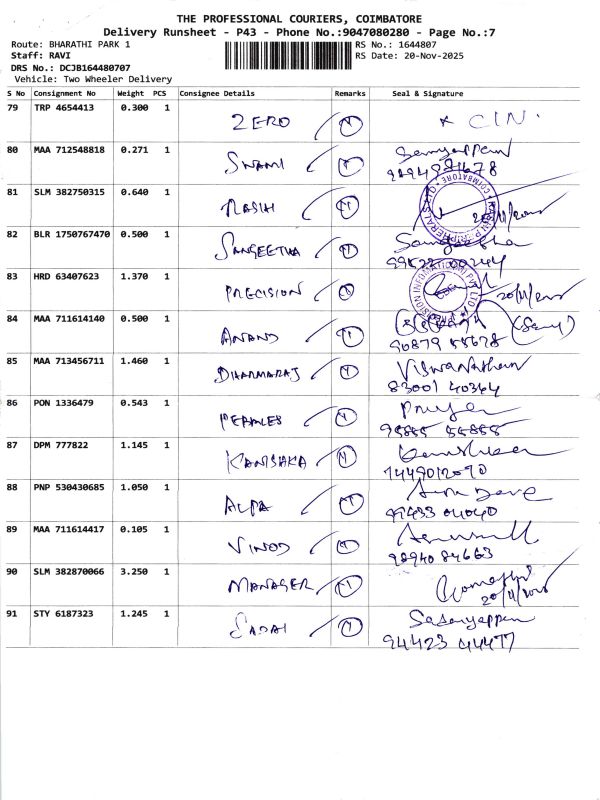 THE PROFESSIONAL COURIERS, COIMBATORE
Delivery Runsheet - P43 - Phone No.:9047080280 - Page No.:7
Route: BHARATHI PARK 1 RS No.: 1644807
Staff: RAVI RS Date: 20-Nov-2025
DRS No.: DCJB164480707
Vehicle: Two Wheeler Delivery
S No Consignment No Weight PCS Consignee Details Remarks Seal & Signature
79 TRP 4654413 0.300 1 ZERO CIN.
80 MAA 712548818 0.271 1 SWAMI
81 SLM 382750315 0.640 1 20/11/2025
82 BLR 1750767470 0.500 1 SANGEETHA
83 HRD 63407623 1.370 1 PRECISION 20/11/2025
84 MAA 711614140 0.500 1 ANAND
90879 55678
85 MAA 713456711 1.460 1 DHARMARAJ Viswanathan
83001 40364
86 PON 1336479 0.543 1
95855 55855
87 DPM 777822 1.145 1 KANISHKA
88 PNP 530430685 1.050 1 ALPA
89 MAA 711614417 0.105 1 VINOD
9894084663
90 SLM 382870066 3.250 1 MANAGER
20/11/2025
91 STY 6187323 1.245 1 SADAI Sadaiyappan
94423 44477